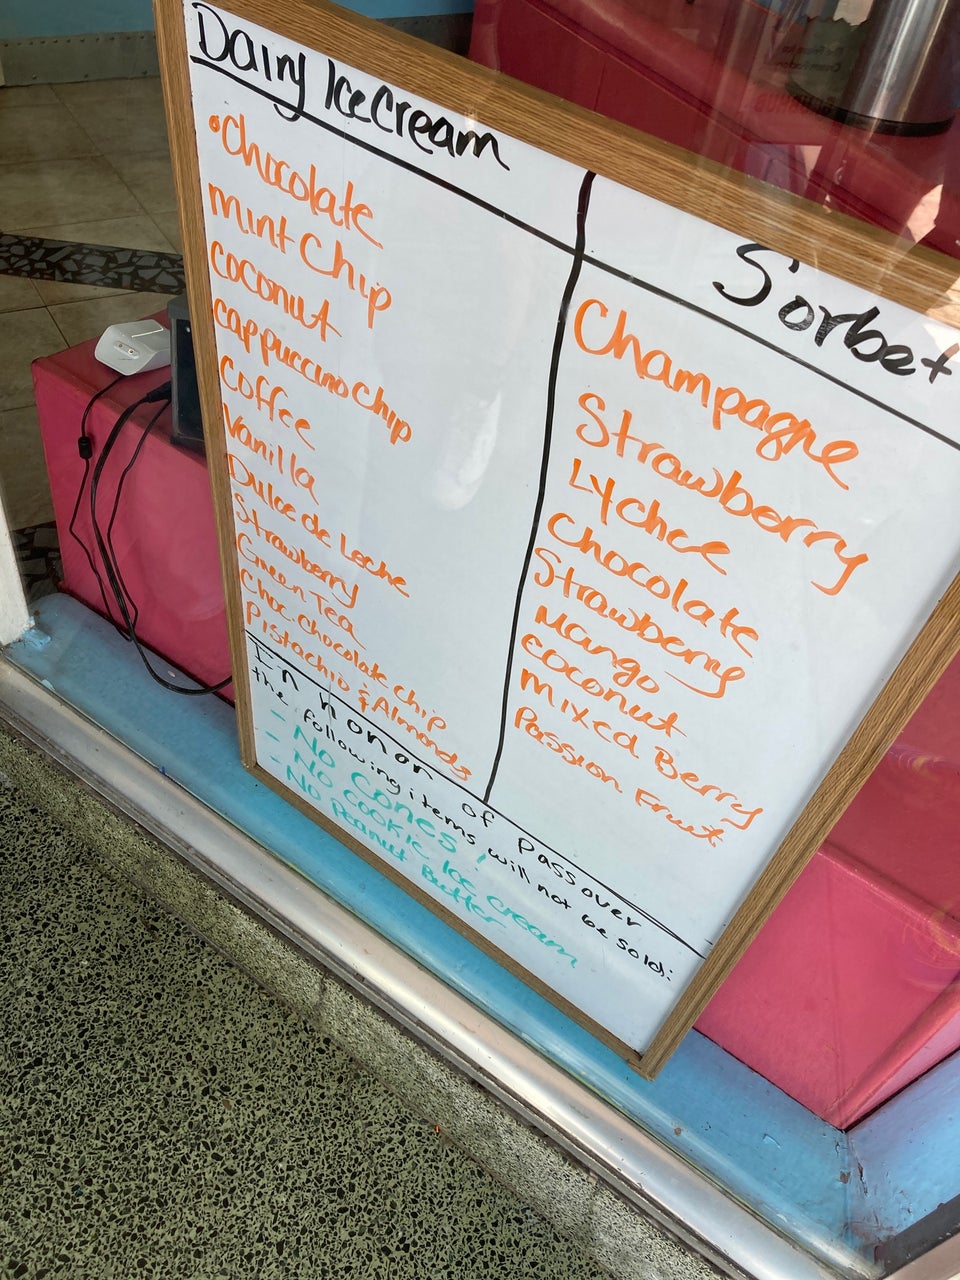 Dairy Ice Cream
Chocolate
Mint Chip
Coconut
Cappuccino Chip
Coffee
Vanilla
Dulce de Leche
Strawberry
Green Tea
Choc. chocolate chip
Pistachio & Almonds
Sorbet
Champagne
Strawberry
Lychee
Chocolate
Strawberry
Mango
Coconut
Mixed Berry
Passion Fruit
In honor of passover
the following items will not be sold:
- No Cones!
- No cookie Ice cream
- No Peanut
Butter